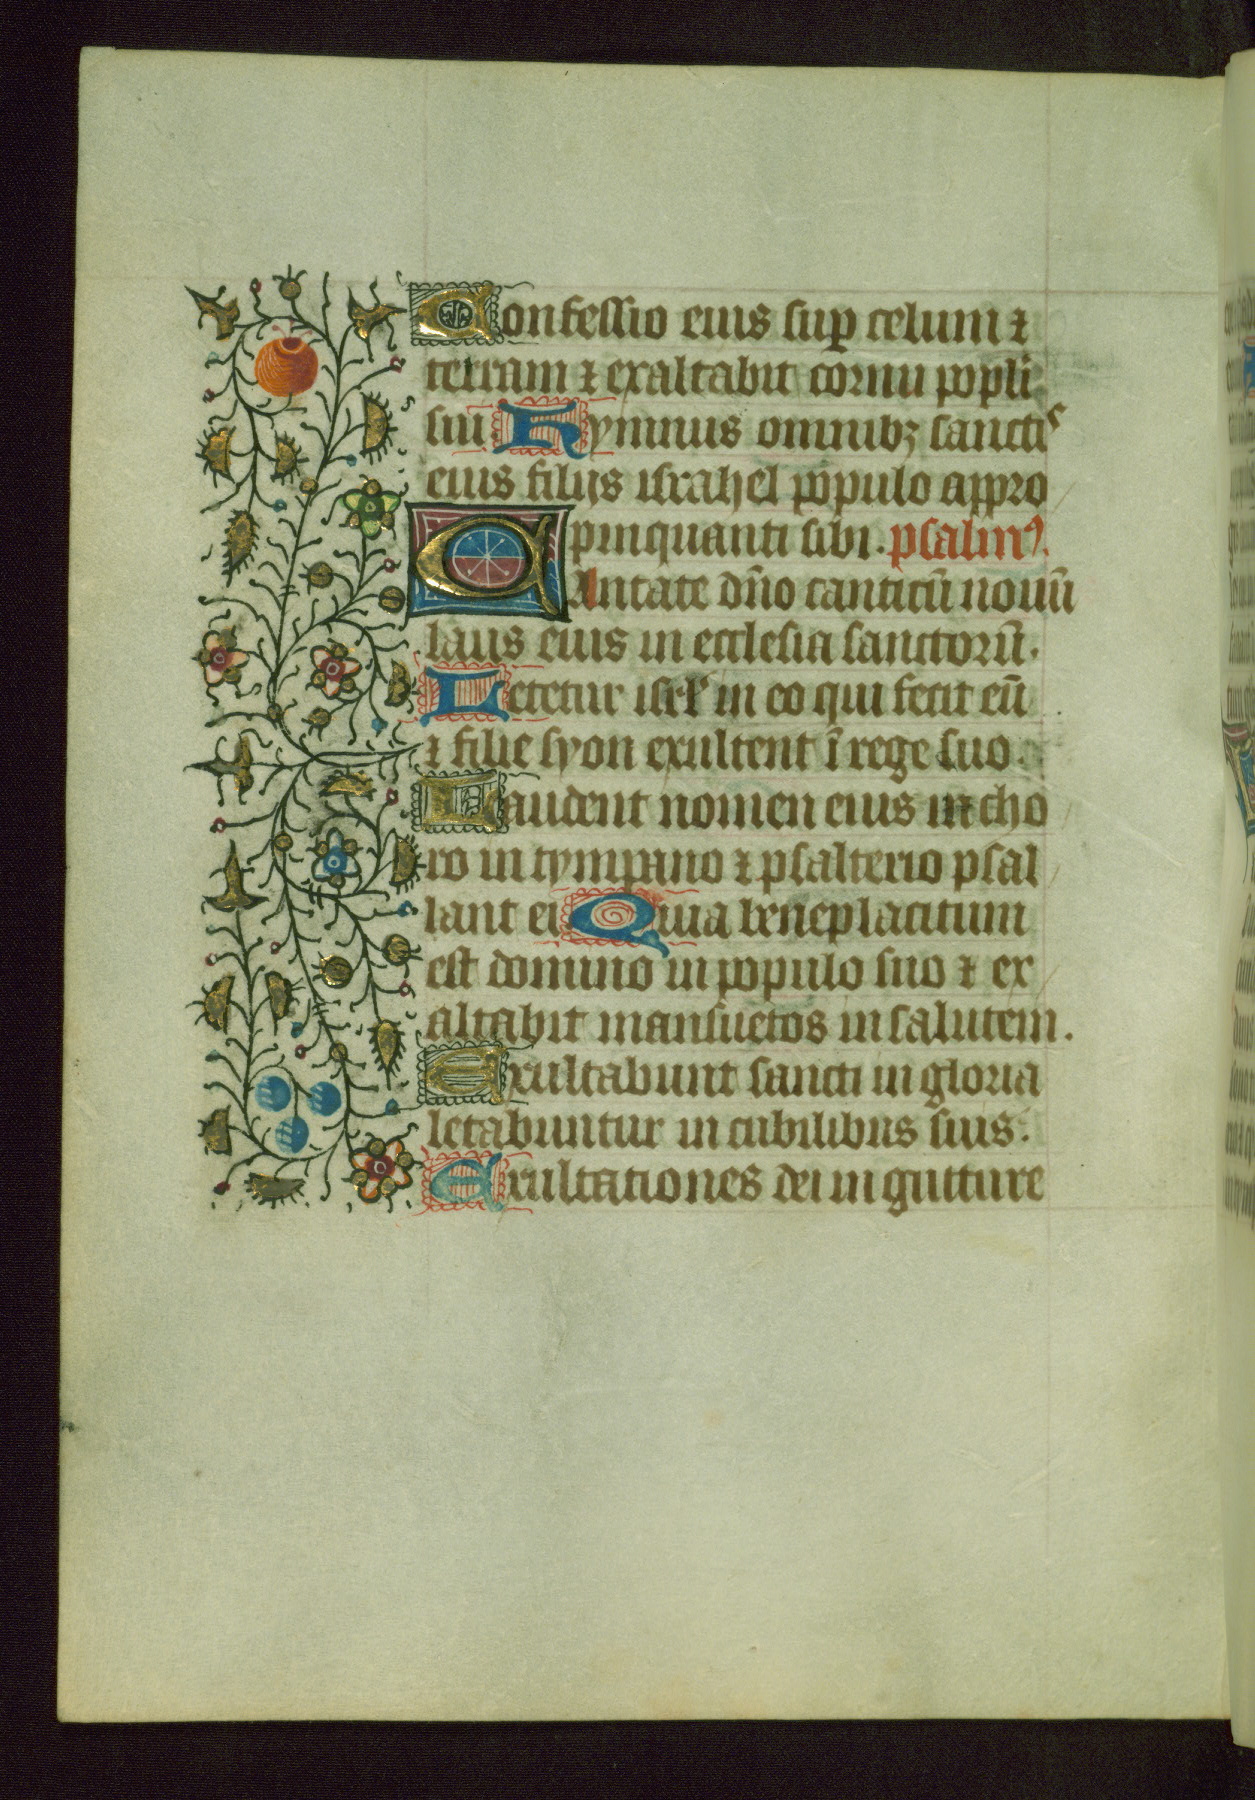 Confessio eius sup celum ⁊
terram ⁊ exaltabit cornu popli
sui Hymnus omnibꝫ sanctis
eius filijs israhel populo appro
pinquanti sibi. psalmꝰ.
Cantate dño canticū nouū
laus eius in ecclesia sanctorū.
Letetur isrl in eo qui fecit eū
⁊ filie syon exultent ī rege suo.
Laudent nomen eius in cho
ro in tympano ⁊ psalterio psal
lant ei Quia beneplacitum
est domino in populo suo ⁊ ex
altabit mansuetos in salutem.
Exultabunt sancti in gloria
letabuntur in cubilibus suis.
Exultationes dei in gutture